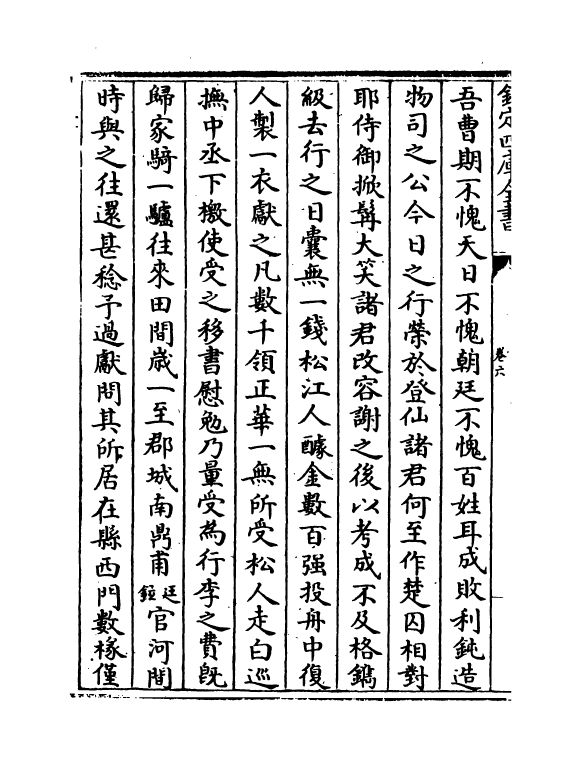 欽定四庫全書
卷六
吾曹期不愧天日不愧朝廷不愧百姓耳成敗利鈍造
物司之公今日之行榮於登仙諸君何至作楚囚相對
耶侍御掀髯大笑諸君改容謝之後以考成不及格鐫
級去行之日囊無一錢松江人醵金數百强投舟中復
人製一衣獻之凡數千領正華一無所受松人走白巡
撫中丞下檄使受之移書慰勉乃量受為行李之費旣
歸家騎一驢往來田間歲一至郡城南鼎甫廷鉉官河間
時與之往還甚稔予過獻問其所居在縣西門數椽僅